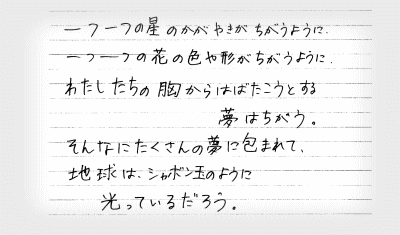 一つ一つの星のかがやきが ちがうように、
一つ一つの花の色や形がちがうように、
わたしたちの胸からはばたこうとする
夢はちがう。
そんなにたくさんの夢に包まれて、
地球は、シャボン玉のように
光っているだろう。